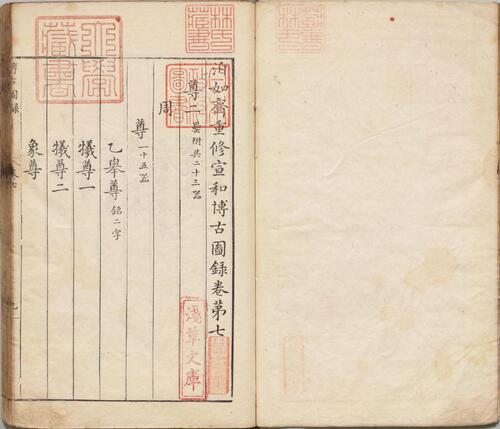 林氏藏書
泊如齋重修宣和博古圖錄卷第七
尊二 罍附共二十三器
周
尊 一十五器
乙舉尊 銘二字
犧尊一
犧尊二
象尊
淺草文庫